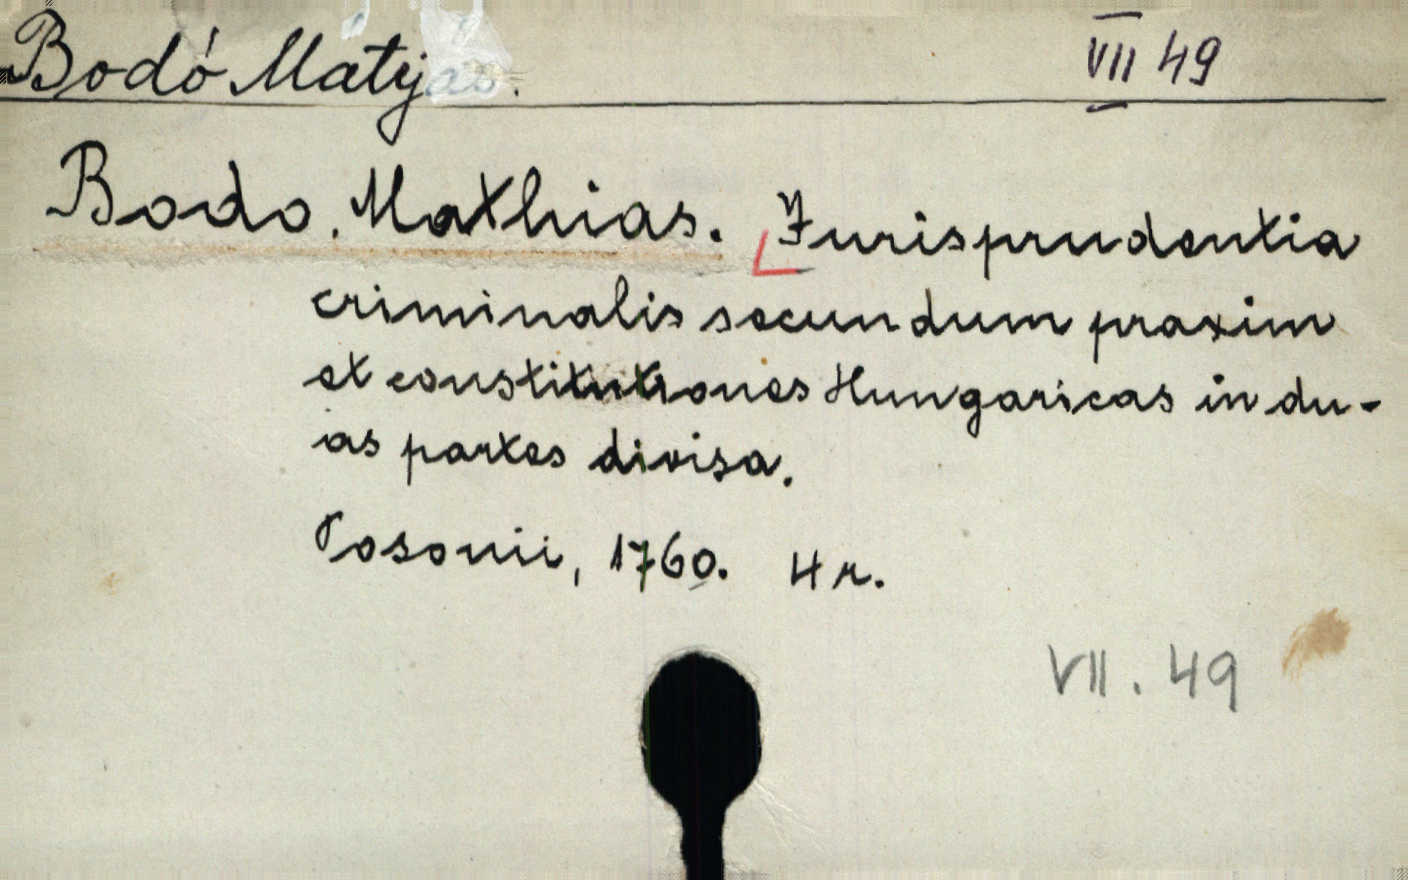 Bodó Matyjas. VII 49
Bodo, Mathias. Jurisprudentia
criminalis secundum praxim
et constitutiones Hungaricas in du-
as partes divisa.
Posonii, 1760. 4 r.
VII. 49